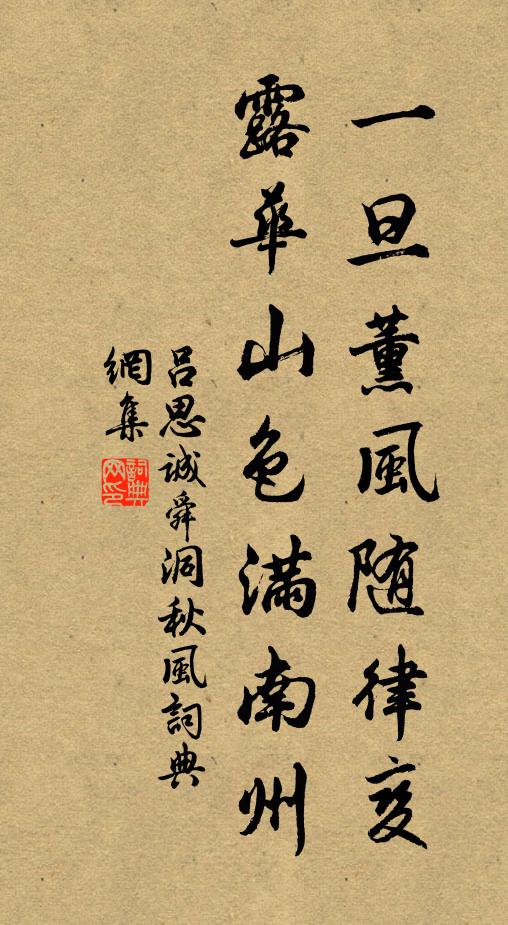 一旦薰風随律变
露華山色滿南州
吕思誠舜洞秋風詞典
網集
詞典
网印